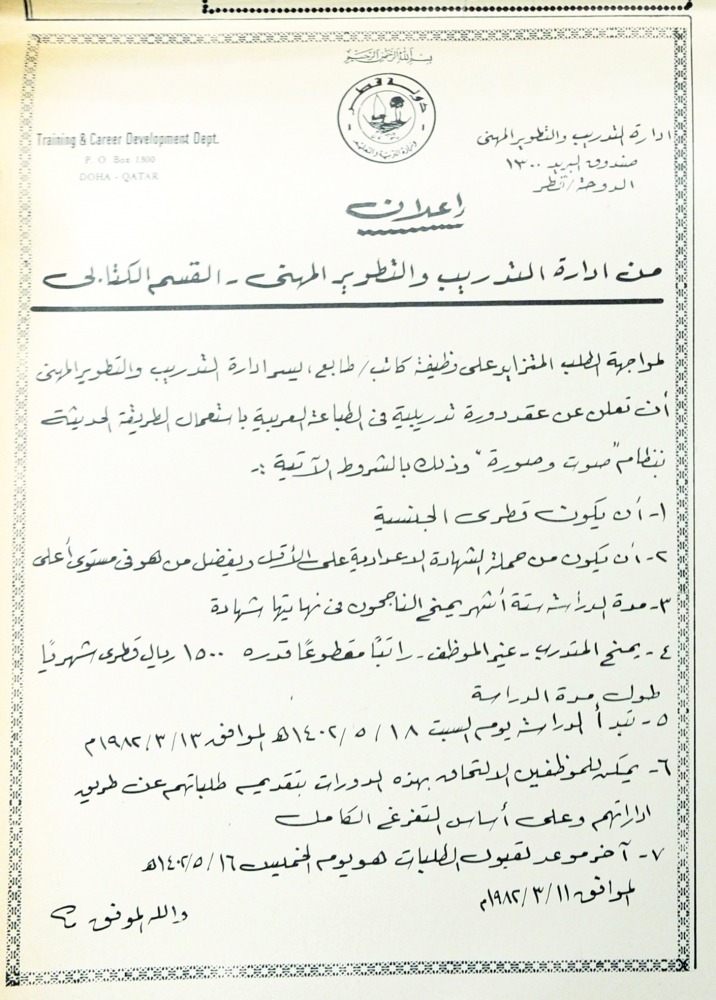 بسم الله الرحمن الرحيم
دولة قطر
وزارة التربية والتعليم
Training & Career Development Dept.
P. O. Box 1300
DOHA - QATAR
ادارة التدريب والتطوير المهنى
صندوق البريد ١٣٠٠
الدوحة / قطر
إعلان
من ادارة التدريب والتطوير المهنى - القسم الكتابى
لمواجهة الطلب المتزايد على وظيفة كاتب / طابع ، يسر ادارة التدريب والتطوير المهنى
أن تعلن عن عقد دورة تدريبية فى الطباعة العربية باستعمال الطريقة الحديثة
بنظام "صوت وصورة" وذلك بالشروط الآتية :-
١- أن يكون قطرى الجنسية
٢- أن يكون من حملة الشهادة الاعدادية على الأقل ويفضل من هو فى مستوى أعلى
٣- مدة الدراسة ستة أشهر يمنح الناجحون فى نهايتها شهادة
٤- يمنح المتدرب - غير الموظف - راتبًا مقطوعًا قدره ١٥٠٠ ريال قطرى شهريًا
طول مدة الدراسة
٥- تبدأ الدراسة يوم السبت ١٨ / ٥ / ١٤٠٢ه الموافق ١٣ / ٣ / ١٩٨٢م
٦- يمكن للموظفين الالتحاق بهذه الدورات بتقديم طلباتهم عن طريق
اداراتهم وعلى أساس التفرغ الكامل
٧- آخر موعد لقبول الطلبات هو يوم الخميس ١٦ / ٥ / ١٤٠٢ه
الموافق ١١ / ٣ / ١٩٨٢م
والله الموفق